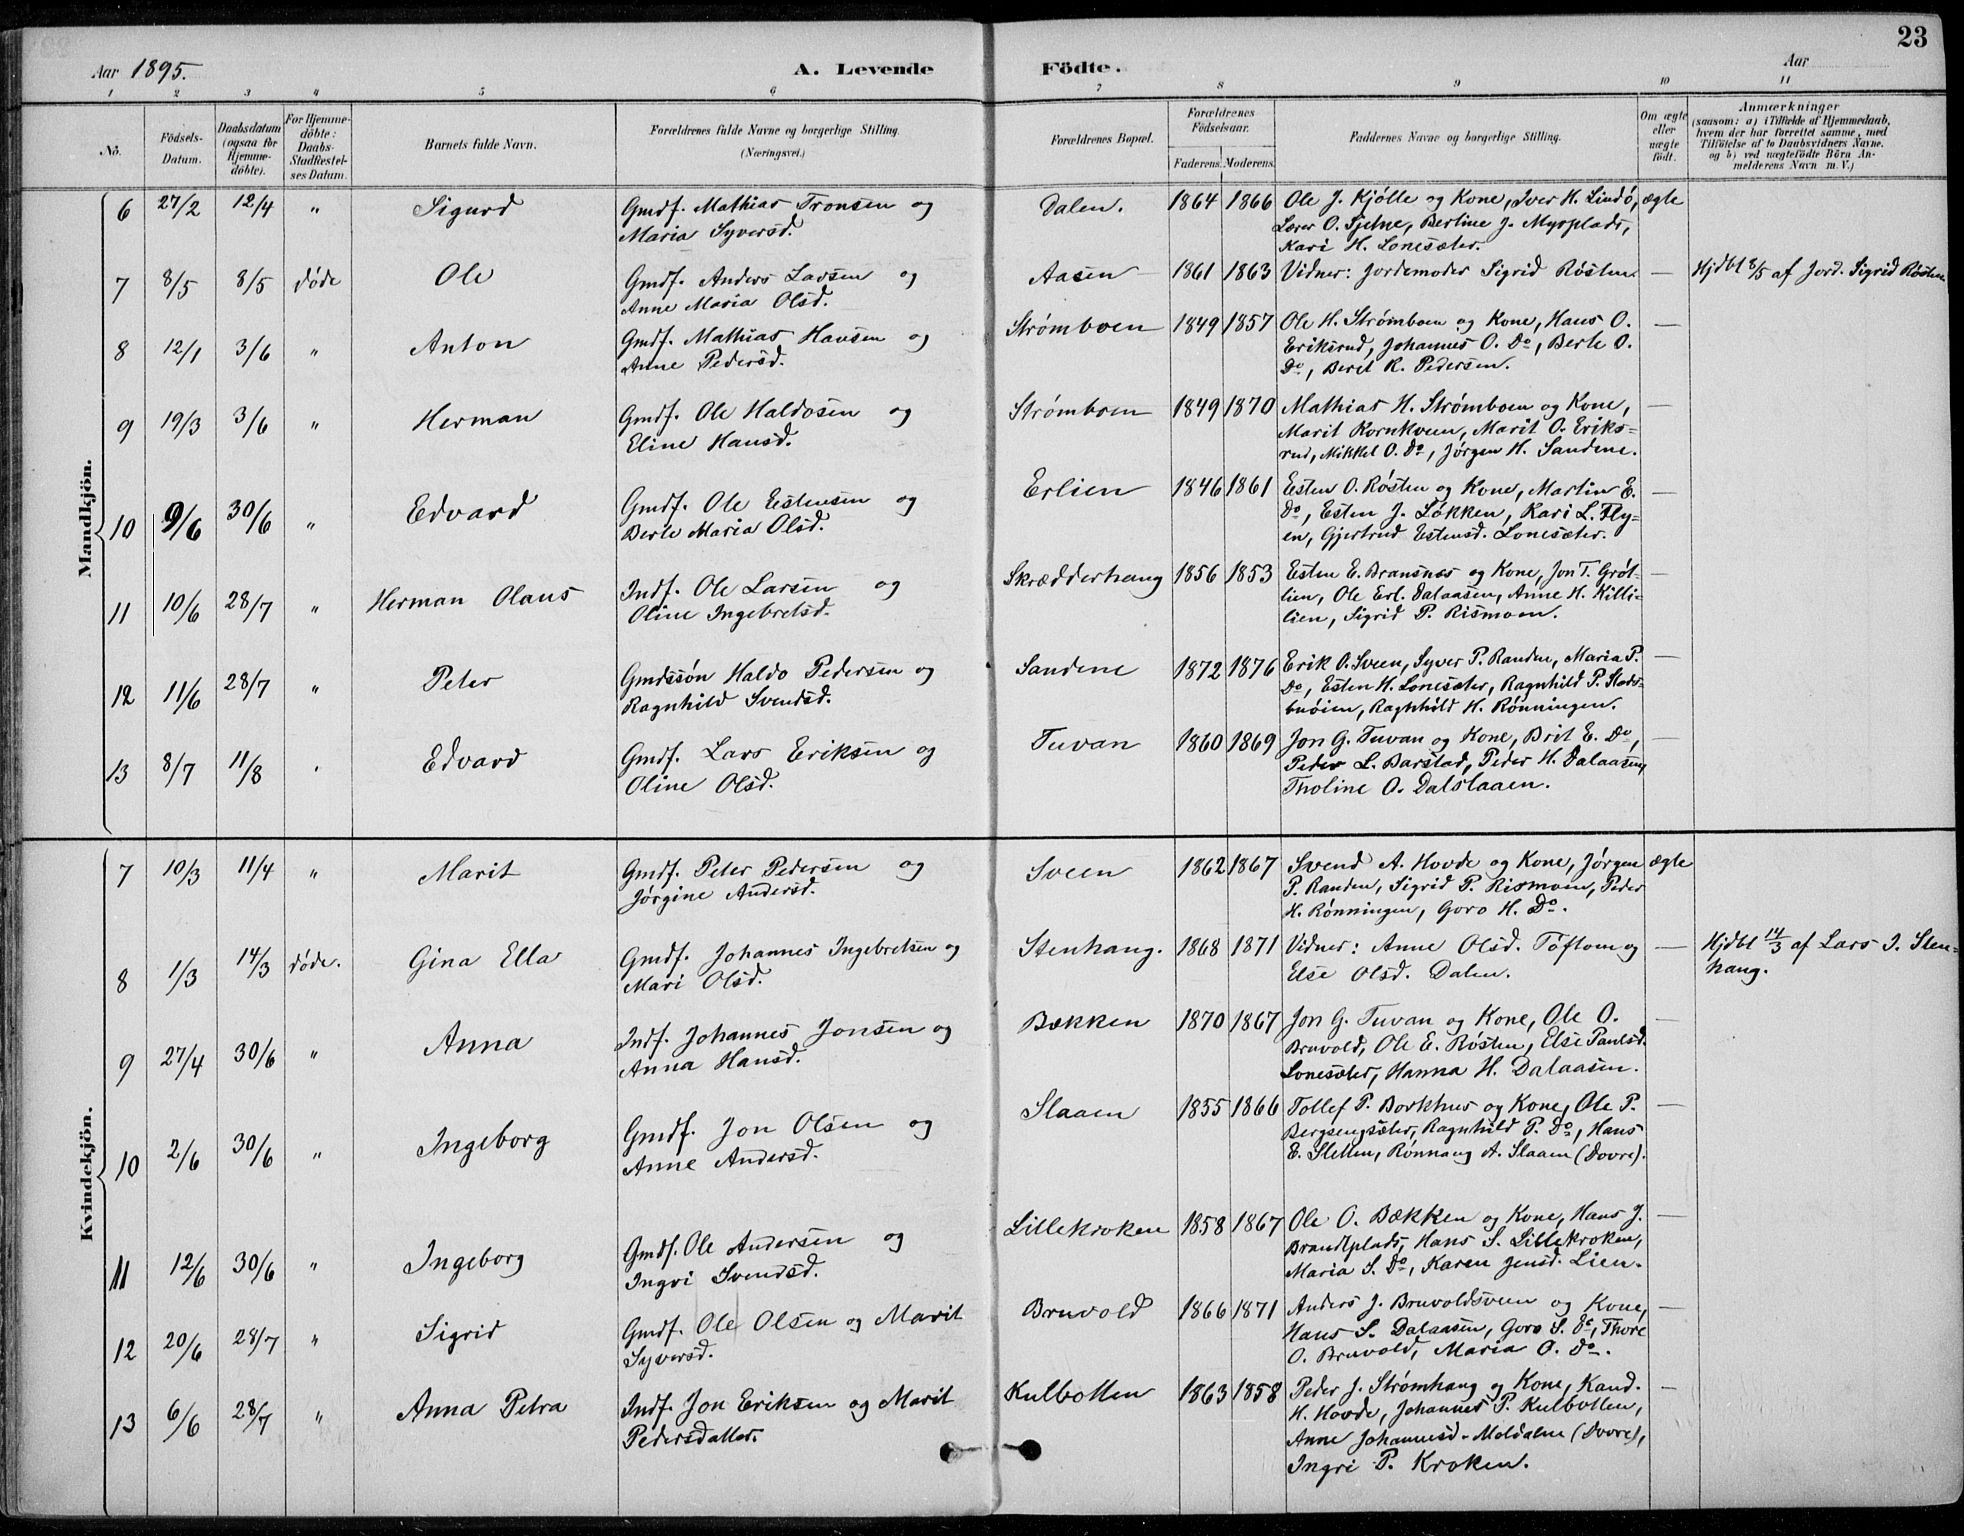 23
Aar 1895.
A. Levende
Födte.
Aar
1 2 3 4 5 6 7 8 9 10 11
No.
Födsels-
Datum.
Daabsdatum
(ogsaa for
Hjemme-
döbte).
For Hjemme-
döbte:
Daabs-
Stadfæstel-
ses Datum.
Barnets fulde Navn.
Forældrenes fulde Navne og borgerlige Stilling.
(Næringsvei.)
Forældrenes Bopæl.
Forældrenes
Födselsaar.
Faderens. Moderens.
Faddernes Navne og borgerlige Stilling.
Om ægte
eller
uægte
födt.
Anmærkninger
(saasom: a) i Tilfælde af Hjemmedaab,
hvem der har forrettet samme, med
Tilföielse af to Daabsvidners Navne.
og b) ved uægtefödte Börn An-
melderens Navn m. V.)
Mandkjön.
6 27/2 12/4 " Sigurd Gmdf. Mathias Tronsen og
Maria Syversd.
Dalen. 1864 1866 Ole J. Kjølle og Kone, Iver H. Lindö, ægte
Lærer O. Sjelne, Berline J. Myrplads,
Kari H. Lonesæter.
7 8/5 8/5 døde Ole Gmdf. Anders Larsen og
Anne Maria Olsd.
Aasen 1861 1863 Vidner: Jordemoder Sigrid Røsten. — Hjdbt 8/5 af Jord. Sigrid Røsten
8 12/1 3/6 " Anton Gmdf. Mathias Hansen og
Anne Pedersd.
Strømboen 1849 1857 Ole H. Strømboen og Kone, Hans O. —
Eriksrud, Johannes O. Do, Berte O.
Do, Berit R. Pedersen.
9 19/3 3/6 " Herman Gmdf. Ole Haldosen og
Eline Hansd.
Strømboen 1849 1870 Mathias H. Strømboen og Kone, —
Marit Kornkveen, Marit O. Eriks-
rud, Mikkel O. Do, Jørgen H. Sandene.
10 9/6 30/6 " Edvard Gmdf. Ole Estensen og
Berte Maria Olsd.
Erlien 1846 1861 Esten O. Røsten og Kone, Martin E. —
Do, Esten J. Løkken, Kari L. Fly-
en, Gjertrud Estensd. Lonesæter.
11 10/6 28/7 " Herman Olaus Indf. Ole Larsen og
Oline Ingebretsd.
Skrædderhaug 1856 1853 Esten E. Bransnæs og Kone, Jon T. Gröt- —
lien, Ole Erl. Dalaasen, Anne H. Killi-
lien, Sigrid P. Rismoen.
12 11/6 28/7 " Peter Gmdssön Haldo Pedersen og
Ragnhild Svendsd.
Sandene 1872 1876 Erik O. Sveen, Syver P. Randen, Maria P. —
Do, Esten H. Lonesæter, Ragnhild P. Stads-
buöien, Ragnhild H. Rønningen.
13 8/7 11/8 " Edvard Gmdf. Lars Eriksen og
Oline Olsd.
Tuvan 1860 1869 Jon G. Tuvan og Kone, Brit E. Do, —
Peder L. Barstad, Peder H. Dalaasen,
Tholine O. Dalslaaen.
Kvindekjön.
7 10/3 11/4 " Marit Gmdf. Peter Pedersen og
Jörgine Andersd.
Sveen 1862 1867 Svend A. Hovde og Kone, Jørgen ægte
P. Randen, Sigrid P. Rismoen, Peder
H. Rønningen, Goro H. Do.
8 1/3 14/3 døde. Gina Ella Gmdf. Johannes Ingebretsen og
Mari Olsd.
Stenhaug. 1868 1871 Vidner: Anne Olsd. Töftom og —
Else Olsd. Dalen.
Hjdbt 14/3 af Lars I. Sten-
haug.
9 27/4 30/6 " Anna Indf. Johannes Jonsen og
Anna Hansd.
Bækken 1870 1867 Jon G. Tuvan og Kone, Ole O. —
Bruvold, Ole E. Røsten, Else Paulsd.
Lonesæter, Hanna H. Dalaasen.
10 2/6 30/6 " Ingeborg Gmdf. Jon Olsen og
Anne Andersd.
Slaaen 1855 1866 Tollef P. Borkhus og Kone, Ole P. —
Bergsengsæter, Ragnhild P. Do, Hans
E. Sletten, Rønnaug A. Slaaen (Dovre).
11 12/6 30/6 " Ingeborg Gmdf. Ole Andersen og
Ingri Svendsd.
Lillekroken 1858 1867 Ole O. Bækken og Kone, Hans J. —
Brandtplads, Hans S. Lillekroken,
Maria S. Do, Karen Jensd. Lien.
12 20/6 28/7 " Sigrid Gmdf. Ole Olsen og Marit
Syversd.
Bruvold 1866 1871 Anders J. Bruvoldsveen og Kone, —
Hans S. Dalaasen, Goro S. Do, Thore
O. Bruvold, Maria O. Do.
13 6/6 28/7 " Anna Petra Indf. Jon Eriksen og Marit
Pedersdatter.
Kulbotten 1863 1858 Peder J. Strømhaug og Kone, Kand. —
H. Hovde, Johannes P. Kulbotten,
Anne Johannesd. Moldalen (Dovre),
Ingri P. Kroken.